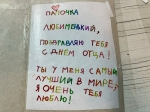 ПАПОЧКА
ЛЮБИМЕНЬКИЙ,
ПОЗДРАВЛЯЮ ТЕБЯ
С ДНЁМ ОТЦА!
ТЫ У МЕНЯ САМЫЙ
ЛУЧШИЙ В МИРЕ,
Я ОЧЕНЬ ТЕБЯ
ЛЮБЛЮ!